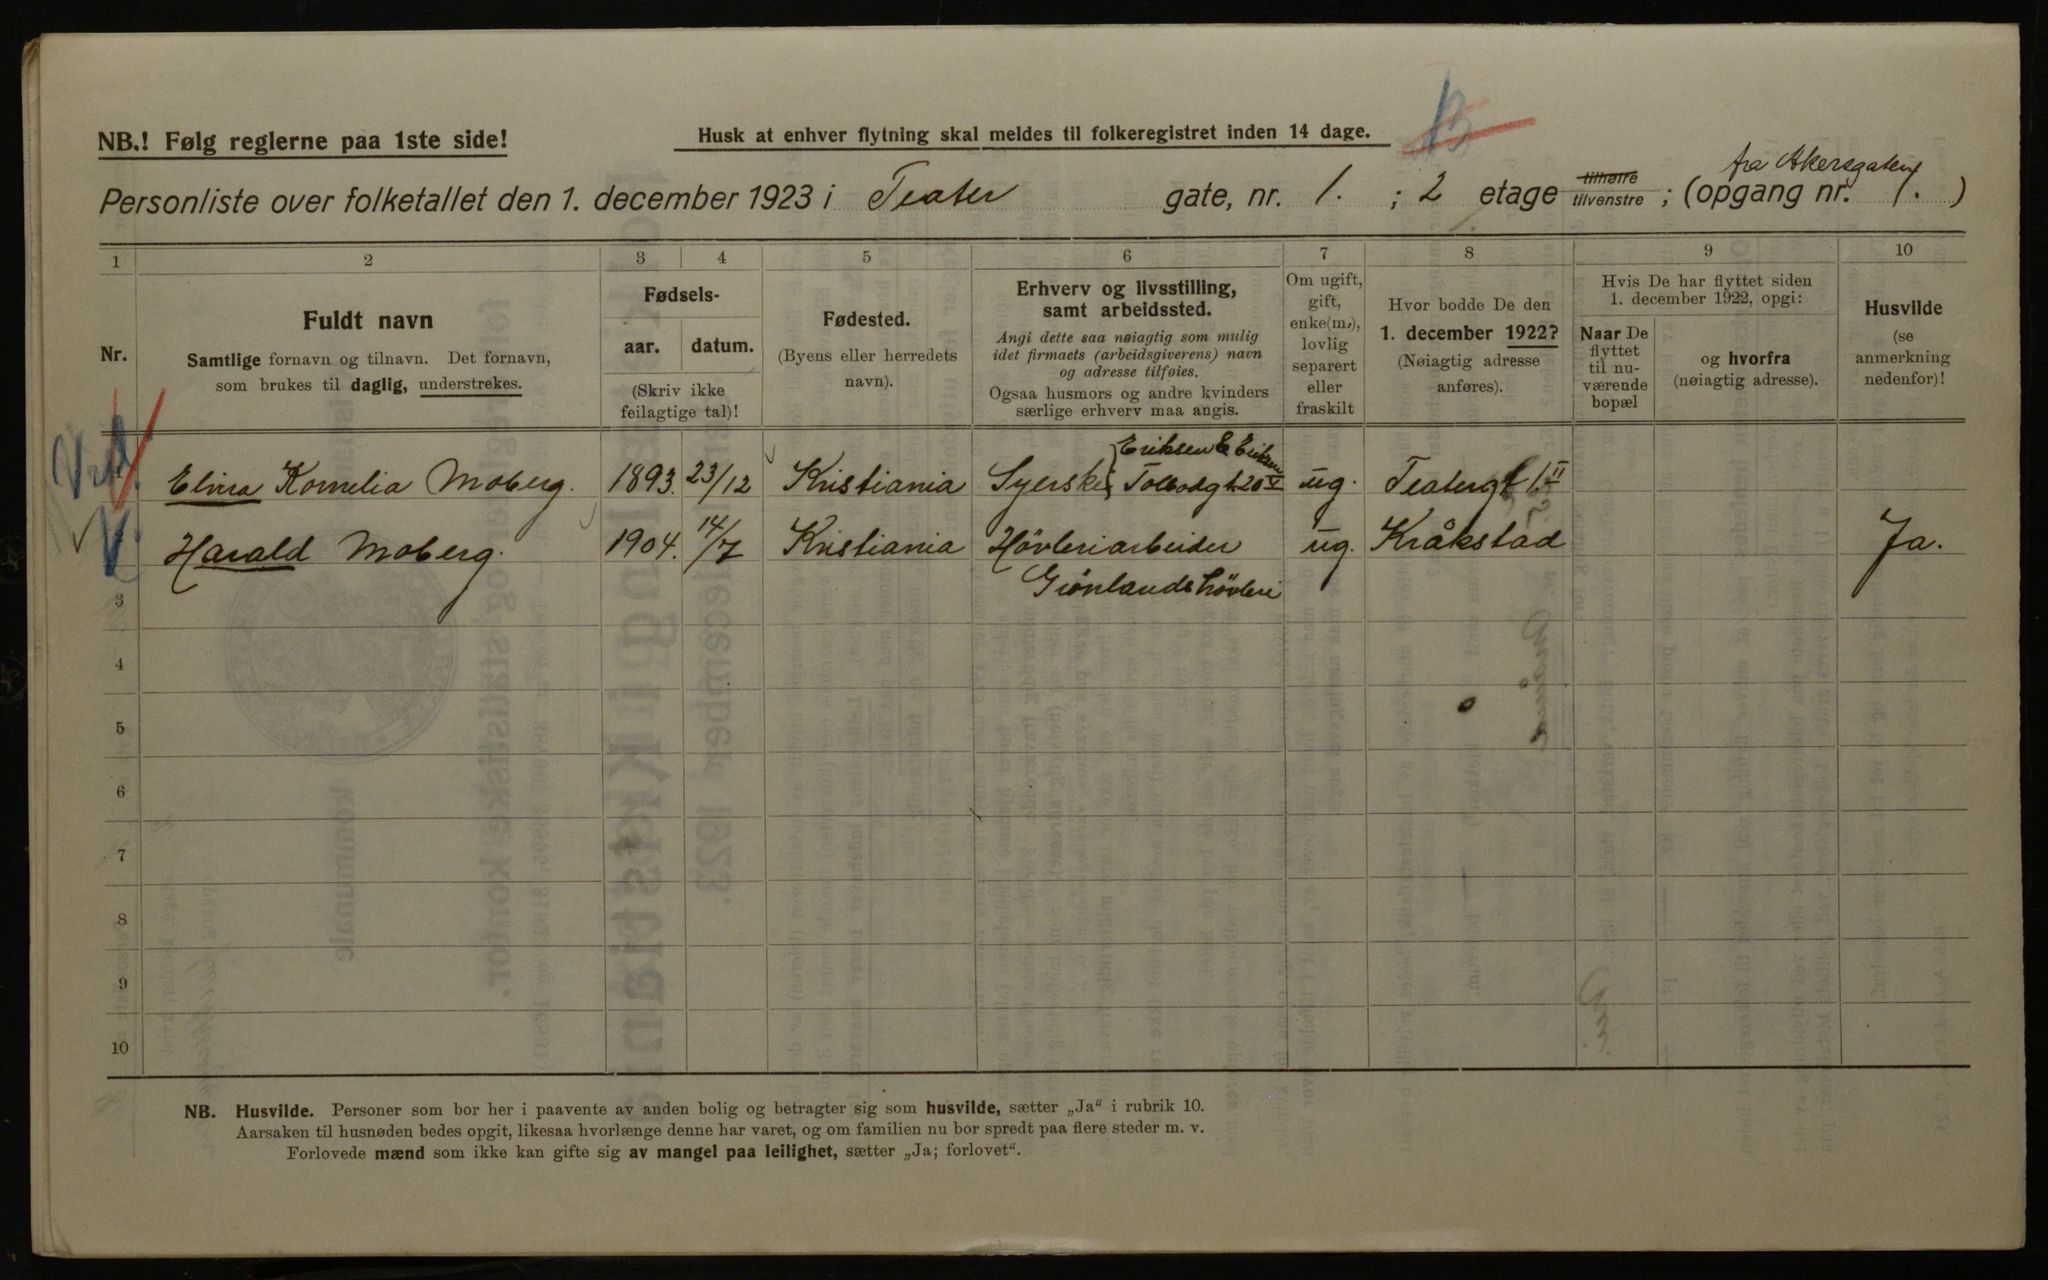 NB.! Følg reglerne paa 1ste side!
Husk at enhver flytning skal meldes til folkeregistret inden 14 dage.
fra Akersgaten
Personliste over folketallet den 1. december 1923 i Teater gate, nr. 1. ; 2 etage tilhøire tilvenstre ; (opgang nr. 1. )
1 2 3 4 5 6 7 8 9 10
Nr.
Fuldt navn
Samtlige fornavn og tilnavn. Det fornavn,
som brukes til daglig, understrekes.
Fødsels-
aar. datum.
(Skriv ikke
feilagtige tal)!
Fødested.
(Byens eller herredets
navn).
Erhverv og livsstilling,
samt arbeidssted.
Angi dette saa nøiagtig som mulig
idet firmaets (arbeidsgiverens) navn
og adresse tilføies.
Ogsaa husmors og andre kvinders
særlige erhverv maa angis.
Om ugift,
gift,
enke(m.),
lovlig
separert
eller
fraskilt
Hvor bodde De den
1. december 1922?
(Nøiagtig adresse
anføres).
Hvis De har flyttet siden
1. december 1922, opgi:
Naar De
flyttet
til nu-
værende
bopæl
og hvorfra
(nøiagtig adresse).
Husvilde
(se
anmerkning
nedenfor)!
Eriksen & Eriksen
Elvira Kornelia Moberg. 1893. 23/12 Kristiania Syerske Tolbodgt. 20 V ug. Teatergt 1. II
Harald Moberg. 1904. 14/7 Kristiania Høvleriarbeider ug. Kråkstad Ja.
Grønlands høvleri
3
4
5
6
7
8
9
10
NB. Husvilde. Personer som bor her i paavente av anden bolig og betragter sig som husvilde, sætter „Ja“ i rubrik 10.
Aarsaken til husnøden bedes opgit, likesaa hvorlænge denne har varet, og om familien nu bor spredt paa flere steder m. v.
Forlovede mænd som ikke kan gifte sig av mangel paa leilighet, sætter „Ja; forlovet“.